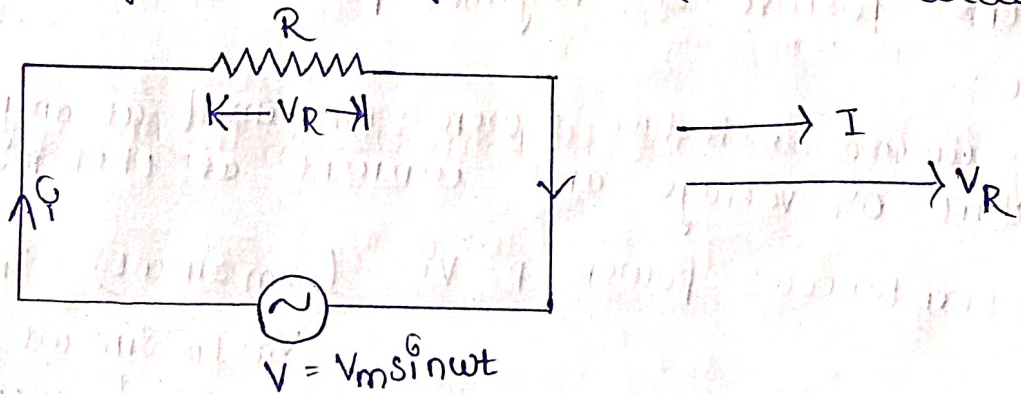 R
V_R
I
V_R
i
V = Vm sin ωt